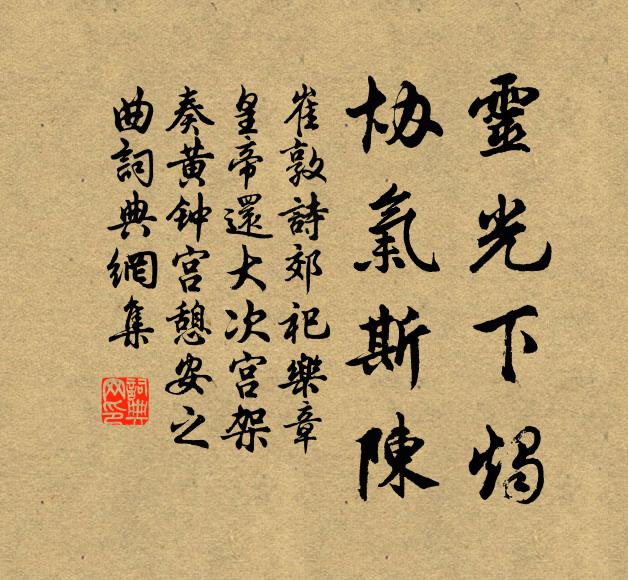 靈光下燭
協氣斯陳
崔敦詩郊祀樂章
皇帝還大次宮架
奏黄钟宫憩安之
曲詞典網集
詞典网印